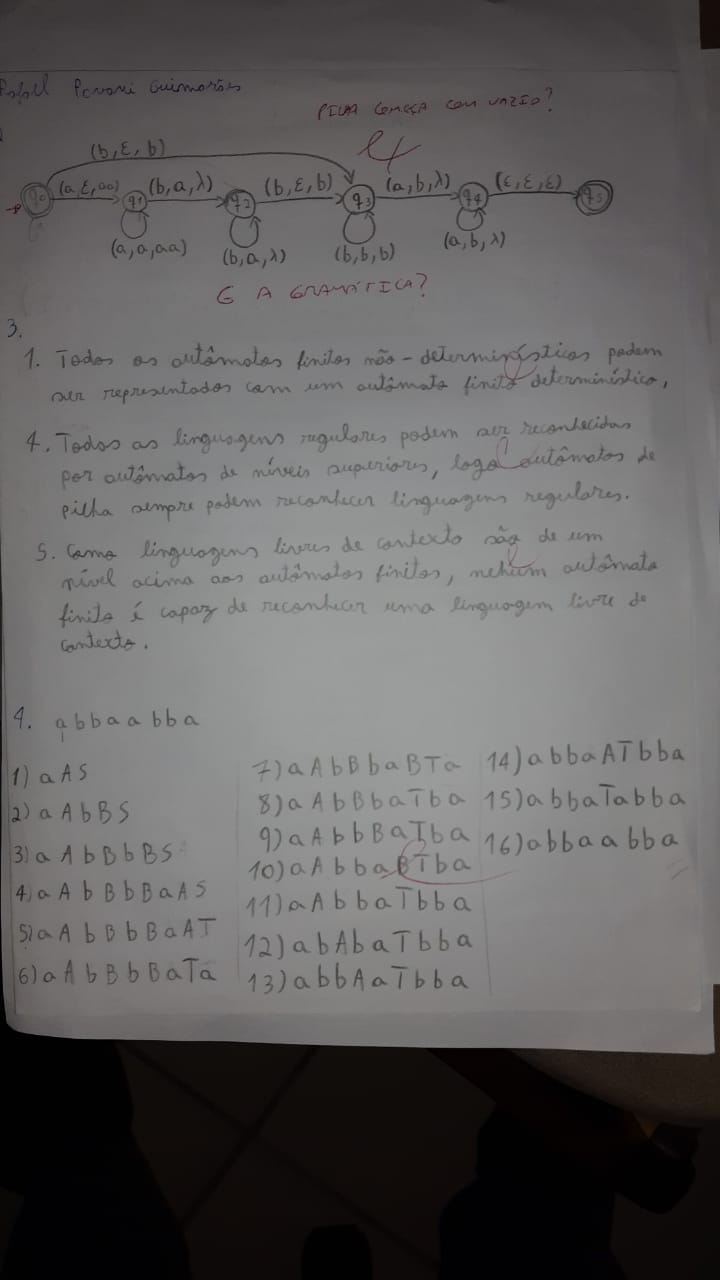 Rafael Povani Guimarões
PILHA COMEÇA COM VAZIO?
(b,ε,b)
(a,ε,aa) (b,a,λ) (b,ε,b) (a,b,λ) (ε,ε,ε)
q0 q1 q2 q3 q4 q5
(a,a,aa) (b,a,λ) (b,b,b) (a,b,λ)
E A GRAMÁTICA?
3.
1. Todos os autômatos finitos não-determinísticos podem
ser representados com um autômato finito determinístico,
4. Todas as linguagens regulares podem ser reconhecidas
por autômatos de níveis superiores, logo autômatos de
pilha sempre podem reconhecer linguagens regulares.
5. Como linguagens livres de contexto são de um
nível acima aos autômatos finitos, nehum autômato
finito é capaz de reconhecer uma linguagem livre de
contexto.
4. abbaabba
1) aAS
2) aAbBS
3) aAbBbBS
4) aAbBbBaAS
5) aAbBbBaAT
6) aAbBbBaTa
7) aAbBbaBTa
8) aAbBbaTba
9) aAbbBaTba
10) aAbbaBTba
11) aAbbaTbba
12) abAbaTbba
13) abbAaTbba
14) abbaATbba
15) abbaTabba
16) abbaabba